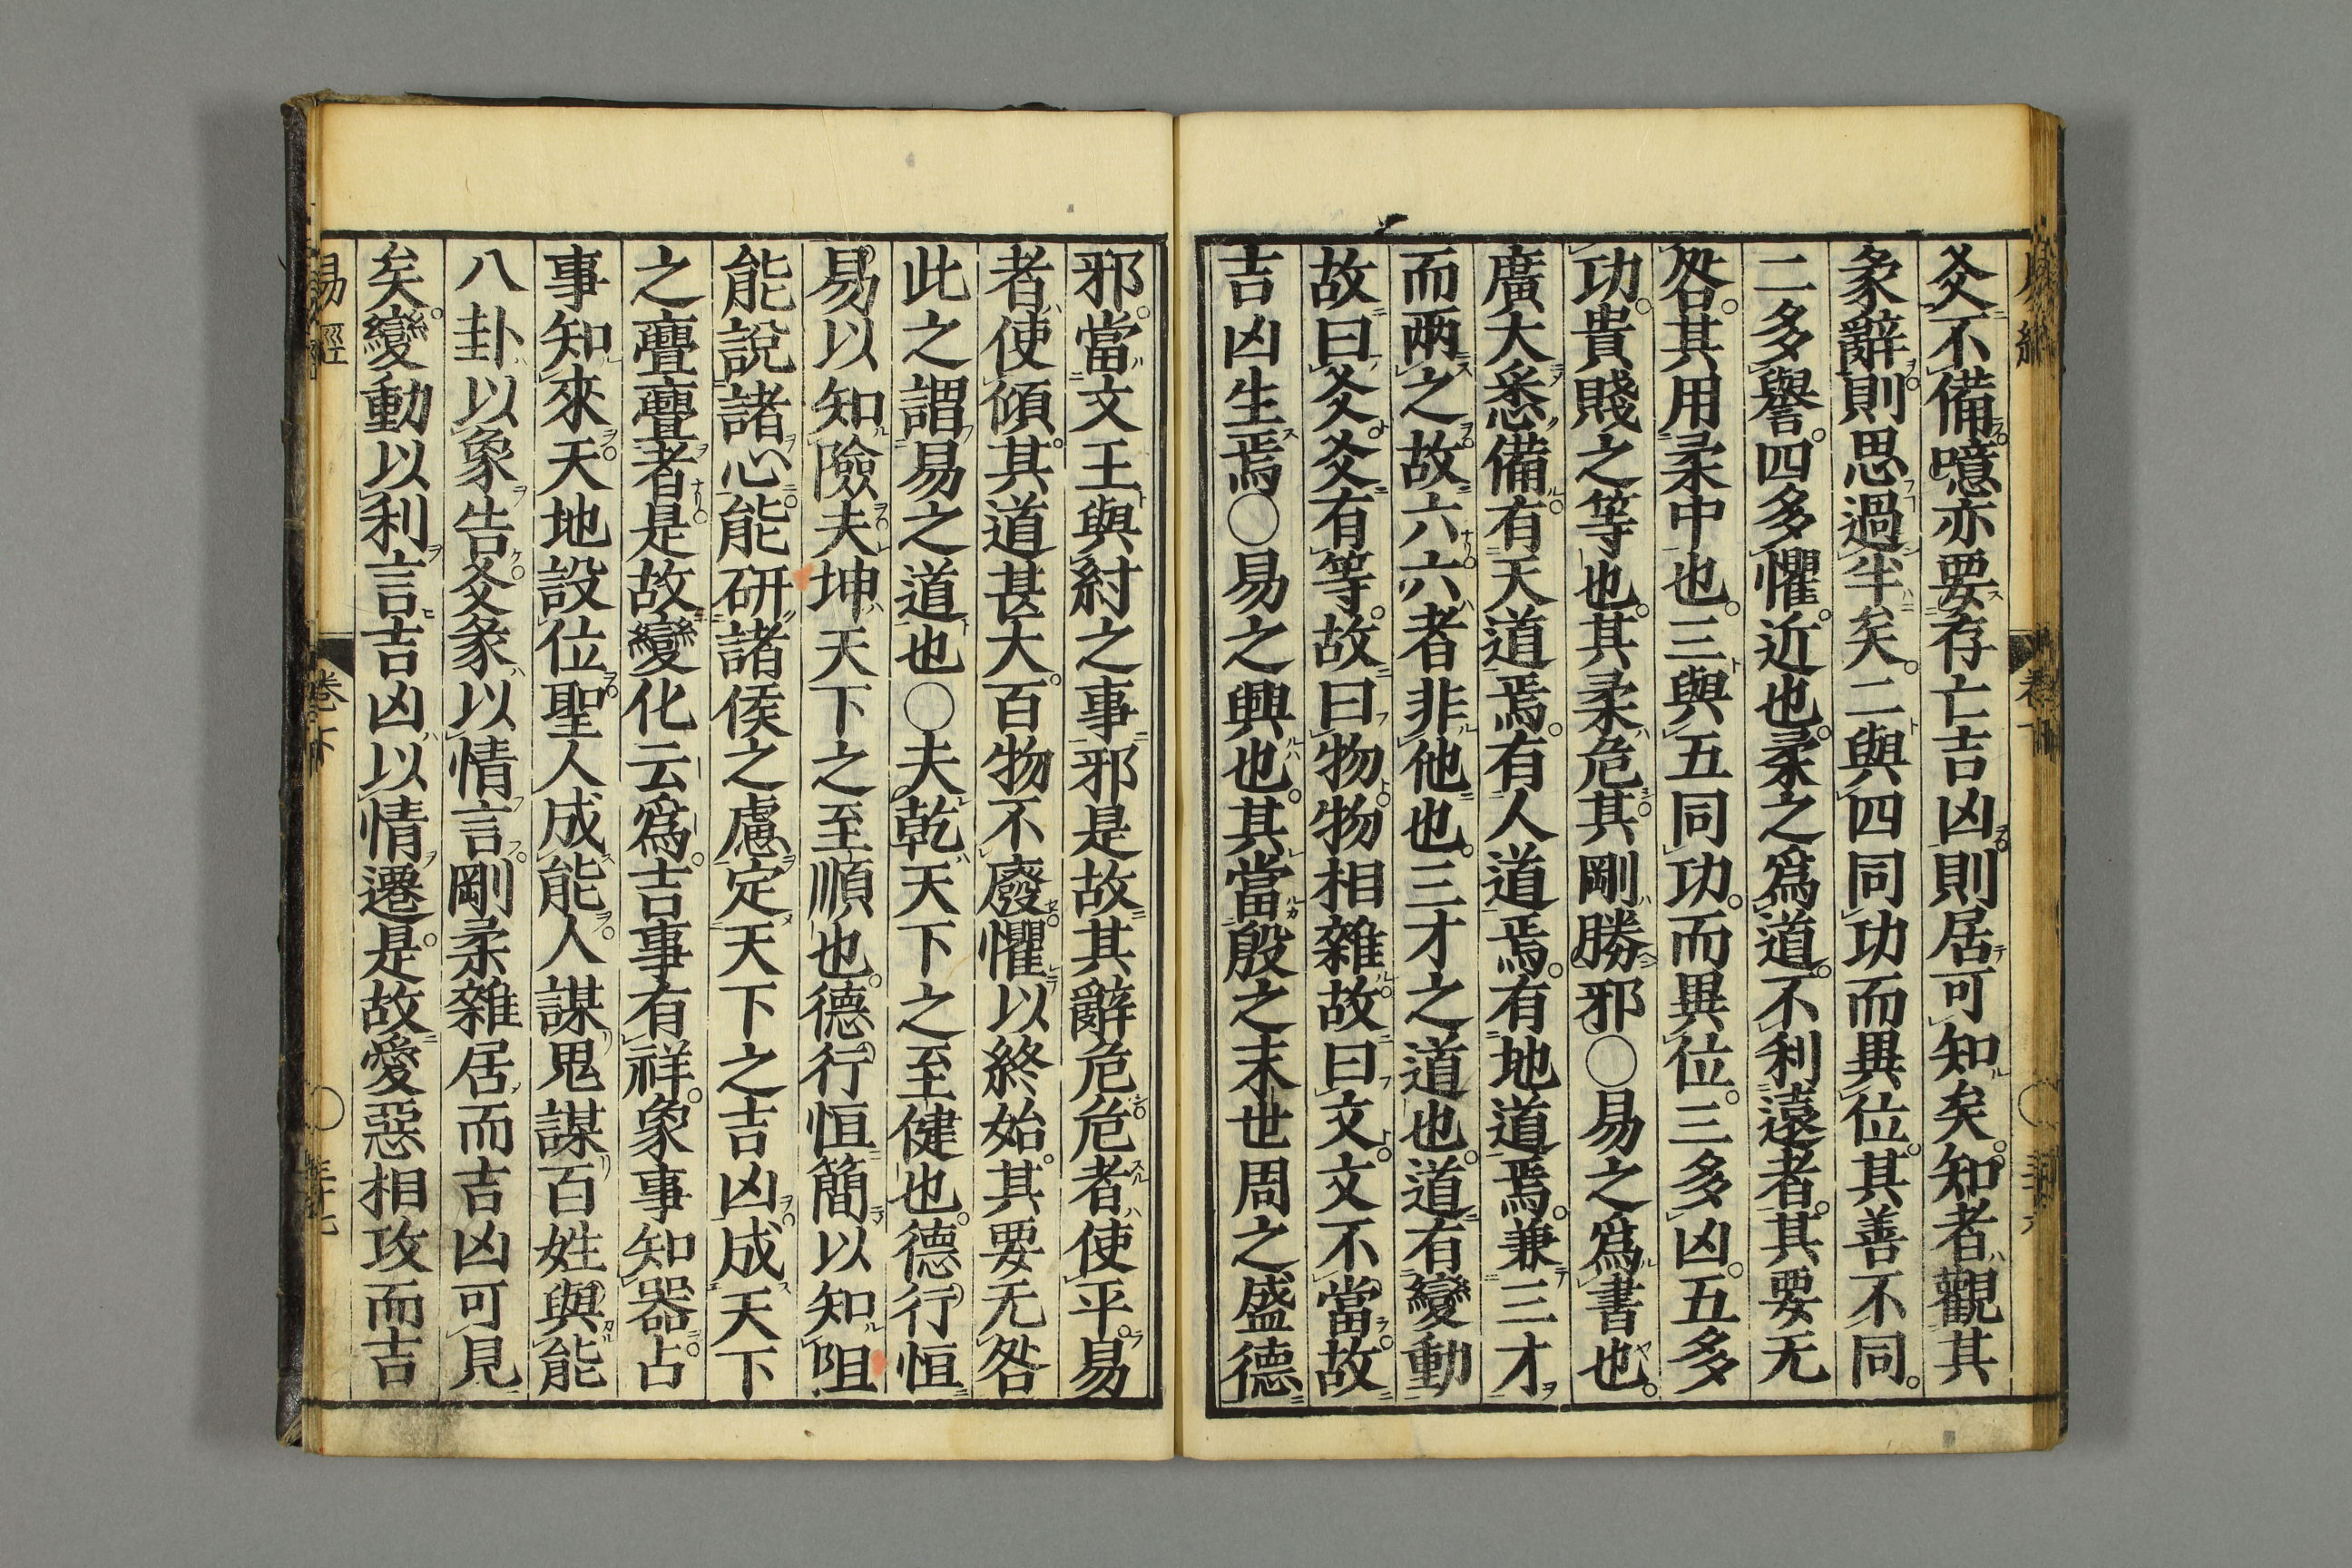 爻不備噫亦要存亡吉凶則居可知矣知者觀其
彖辭則思過半矣二與四同功而異位其善不同
二多譽四多懼近也柔之爲道不利遠者其要无
咎其用柔中也三與五同功而異位三多凶五多
功貴賤之等也其柔危其剛勝邪○易之爲書也
廣大悉備有天道焉有人道焉有地道焉兼三才
而兩之故六六者非他也三才之道也道有變動
故曰爻爻有等故曰物物相雜故曰文文不當故
吉凶生焉○易之興也其當殷之末世周之盛德
邪當文王與紂之事邪是故其辭危危者使平易
者使傾其道甚大百物不廢懼以終始其要无咎
此之謂易之道也○夫乾天下之至健也德行恒
易以知險夫坤天下之至順也德行恒簡以知阻
能說諸心能研諸侯之慮定天下之吉凶成天下
之亹亹者是故變化云爲吉事有祥象事知器占
事知來天地設位聖人成能人謀鬼謀百姓與能
八卦以象告爻彖以情言剛柔雜居而吉凶可見
矣變動以利言吉凶以情遷是故愛惡相攻而吉
易經 卷下 ○